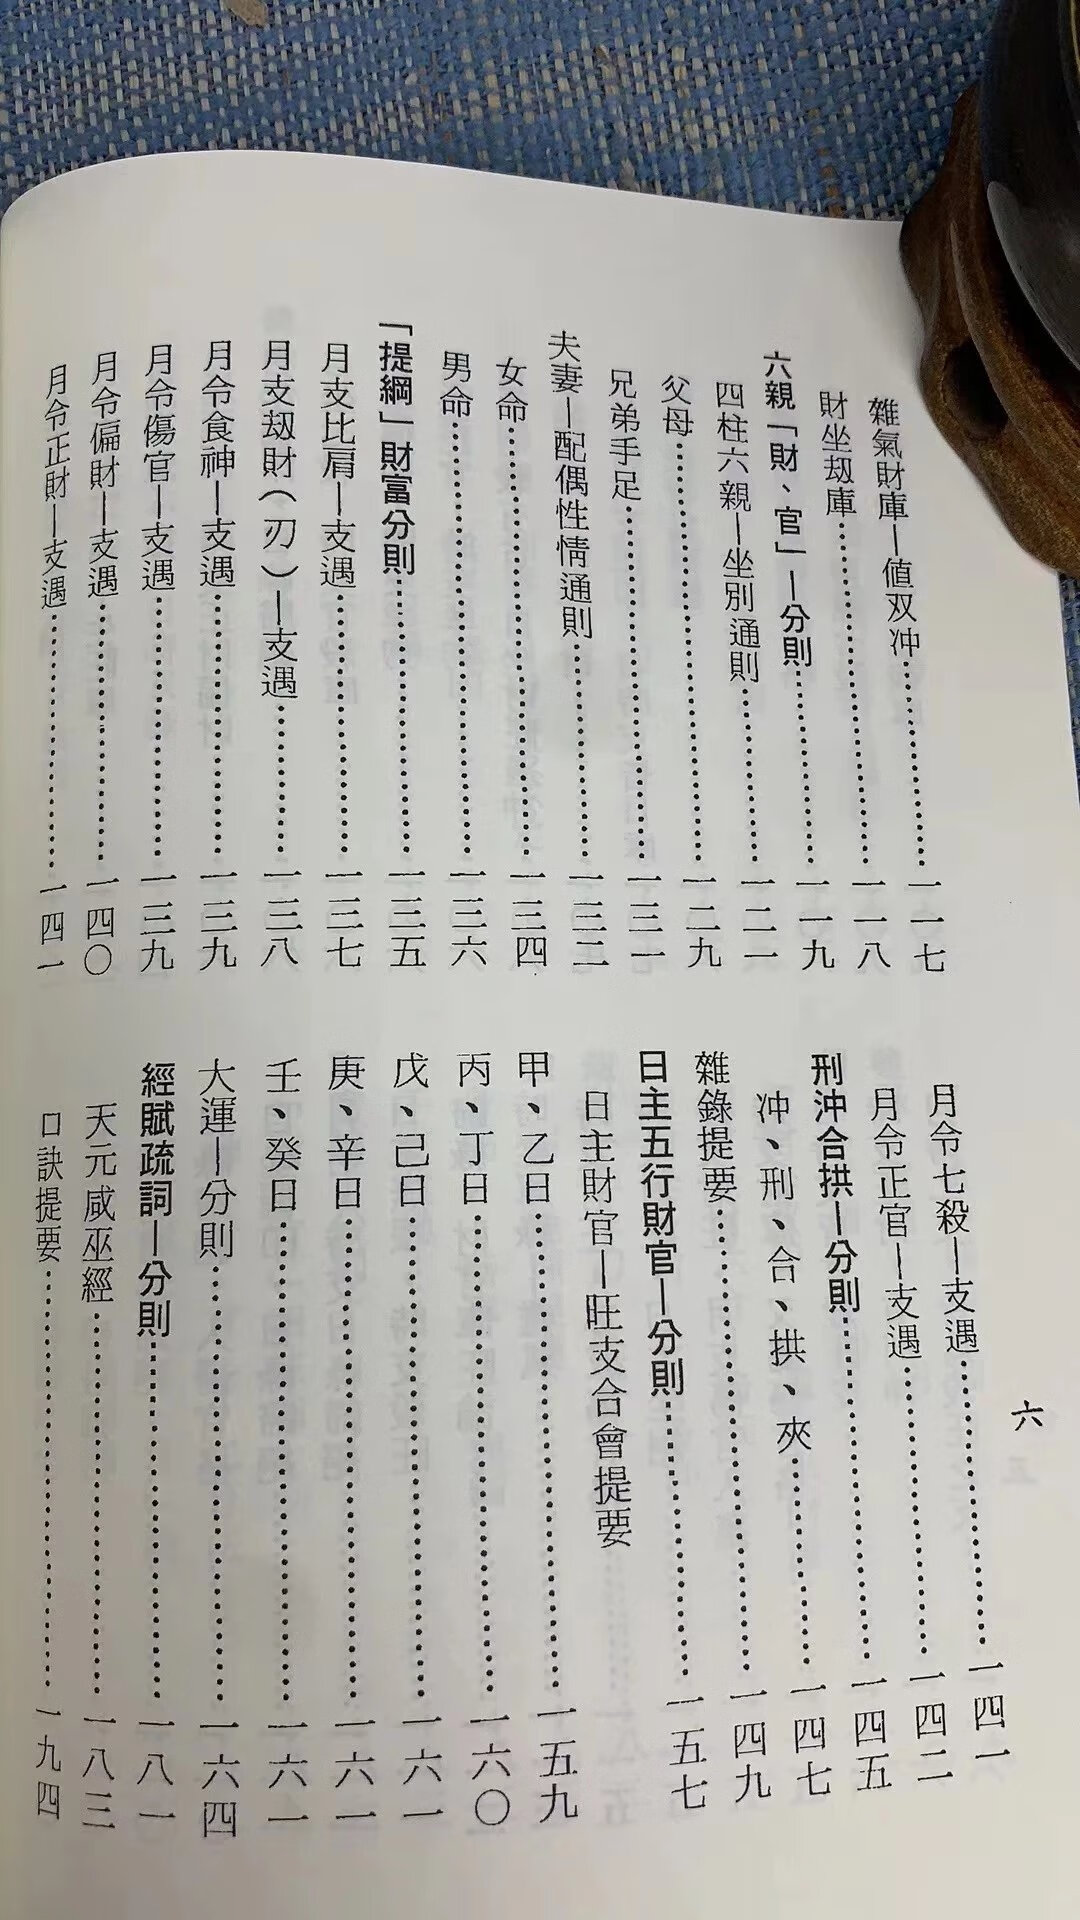 雜氣財庫—值双冲……一一七
財坐刼庫……一一八
六親「財、官」—分則……一一九
四柱六親—坐別通則……一二一
父母……一二九
兄弟手足……一三一
夫妻—配偶性情通則……一三二
女命……一三四
男命……一三六
「提綱」財富分則……一三五
月支比肩—支遇……一三七
月支刼財(刃)—支遇……一三八
月令食神—支遇……一三九
月令傷官—支遇……一三九
月令偏財—支遇……一四〇
月令正財—支遇……一四一
月令七殺—支遇……一四一
月令正官—支遇……一四二
刑沖合拱—分則……一四五
冲、刑、合、拱、夾……一四七
雜錄提要……一四九
日主五行財官—分則……一五七
日主財官—旺支合會提要
甲、乙日……一五九
丙、丁日……一六〇
戊、己日……一六一
庚、辛日……一六一
壬、癸日……一六一
大運—分則……一六四
經賦疏詞—分則……一八一
天元咸巫經……一八三
口訣提要……一九四
六